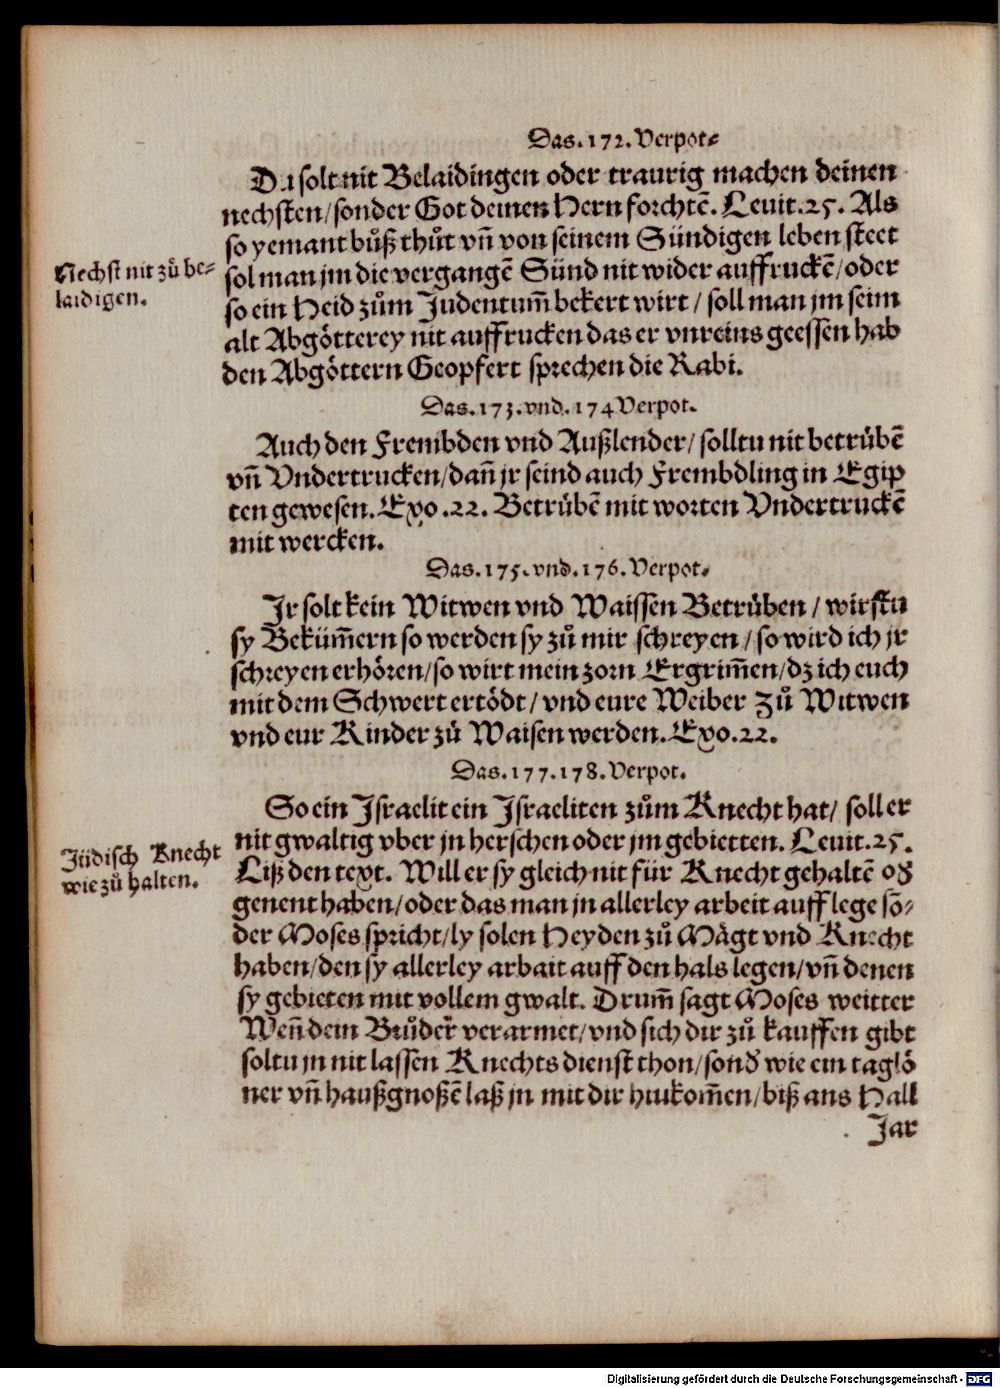 Das. 172. Verpot.
Du solt nit Belaidingen oder traurig machen deinen
nechsten/sonder Got deinen Hern forchtē. Leuit. 25. Als
so yemant bůß thůt vñ von seinem Sündigen leben steet
Nechst nit zů be-
laidigen.
sol man jm die vergangē Sünd nit wider auffruckē/oder
so ein Heid zům Judentum̄ bekert wirt/ soll man jm seim
alt Abgötterey nit auffrucken das er vnreins geessen hab
den Abgöttern Geopfert sprechen die Rabi.
Das. 173. vnd. 174 Verpot.
Auch den Frembden vnd Außlender/ solltu nit betrübē
vñ Vndertrucken/dañ jr seind auch Frembdling in Egip
ten gewesen. Exo. 22. Betrübē mit worten Vndertruckē
mit wercken.
Das. 175. vnd. 176. Verpot.
Jr solt kein Witwen vnd Waissen Betrüben/ wirstu
sy Beküm̄ern so werden sy zů mir schreyen/ so wird ich jr
schreyen erhören/so wirt mein zorn Ergrim̄en/dz ich euch
mit dem Schwert ertödt/ vnd eure Weiber Zů Witwen
vnd eur Kinder zů Waisen werden. Exo. 22.
Das. 177. 178. Verpot.
So ein Israelit ein Israeliten zům Knecht hat/ soll er
nit gwaltig vber jn herschen oder jm gebietten. Leuit. 25.
Jüdisch Knecht
wie zů halten.
Liß den text. Will er sy gleich nit für Knecht gehaltē od̕
genent haben/oder das man jn allerley arbeit auff lege sō-
der Moses spricht/ly solen Heyden zů Mägt vnd Knecht
haben/den sy allerley arbait auff den hals legen/vñ denen
sy gebieten mit vollem gwalt. Drum̄ sagt Moses weitter
Weñ dein Brůder verarmet/vnd sich dir zů kauffen gibt
soltu jn nit lassen Knechts dienst thon/sond̕ wie ein taglö
ner vñ haußgnoßē laß jn mit dir hiukom̄en/biß ans Hall
Jar
Digitalisierung gefördert durch die Deutsche Forschungsgemeinschaft - DFG